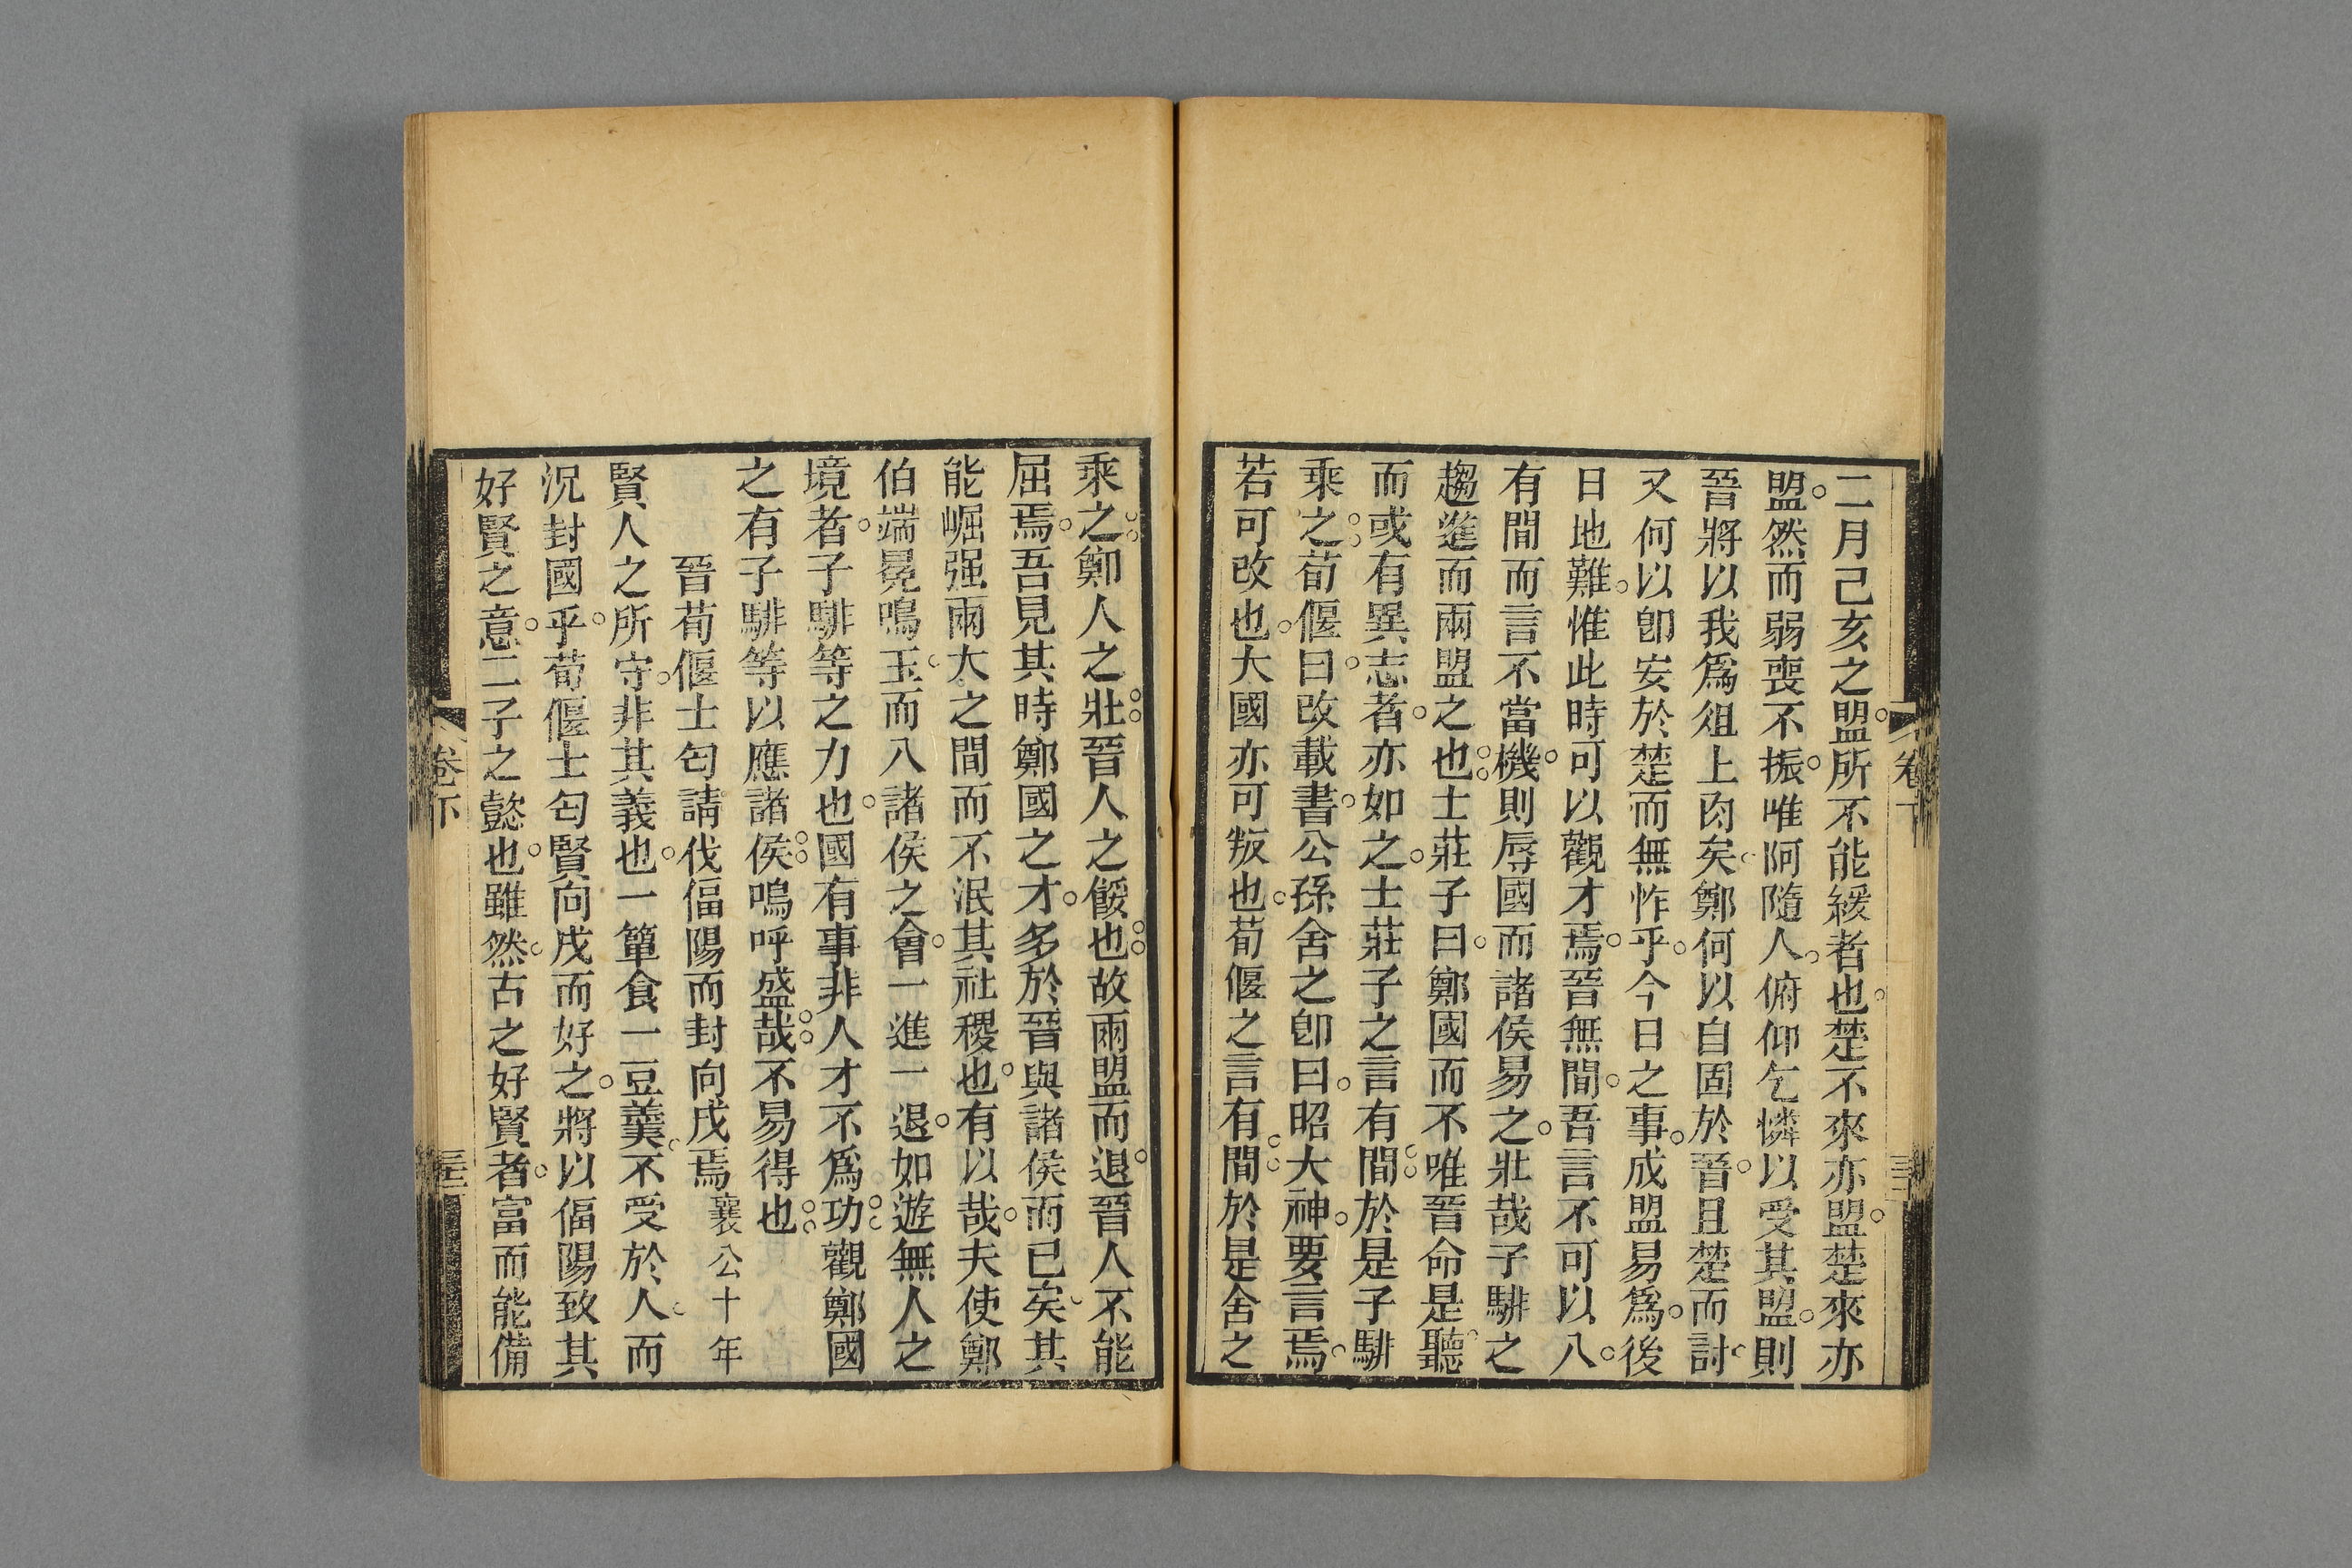 二月己亥之盟所不能緩者也楚不來亦盟楚來亦
盟然而弱喪不振唯阿隨人俯仰乞憐以受其盟則
晉將以我爲俎上肉矣鄭何以自固於晉且楚而討
又何以卽安於楚而無怍乎今日之事成盟易爲後
日地難惟此時可以觀才焉晉無間吾言不可以入
有間而言不當機則辱國而諸侯易之壯哉子騑之
趨進而兩盟之也士莊子曰鄭國而不唯晉命是聽
而或有異志者亦如之士莊子之言有間於是子騑
乘之荀偃曰改載書公孫舍之卽曰昭大神要言焉
若可改也大國亦可叛也荀偃之言有間於是舍之
卷下
乘之鄭人之壯晉人之餒也故兩盟而退晉人不能
屈焉吾見其時鄭國之才多於晉與諸侯而已矣其
能崛强兩大之間而不泯其社稷也有以哉夫使鄭
伯端冕鳴玉而入諸侯之會一進一退如遊無人之
境者子騑等之力也國有事非人才不爲功觀鄭國
之有子騑等以應諸侯嗚呼盛哉不易得也
晉荀偃士匄請伐偪陽而封向戌焉襄公十年
賢人之所守非其義也一簞食一豆羹不受於人而
況封國乎荀偃士匄賢向戌而好之將以偪陽致其
好賢之意二子之懿也雖然古之好賢者富而能備
卷下